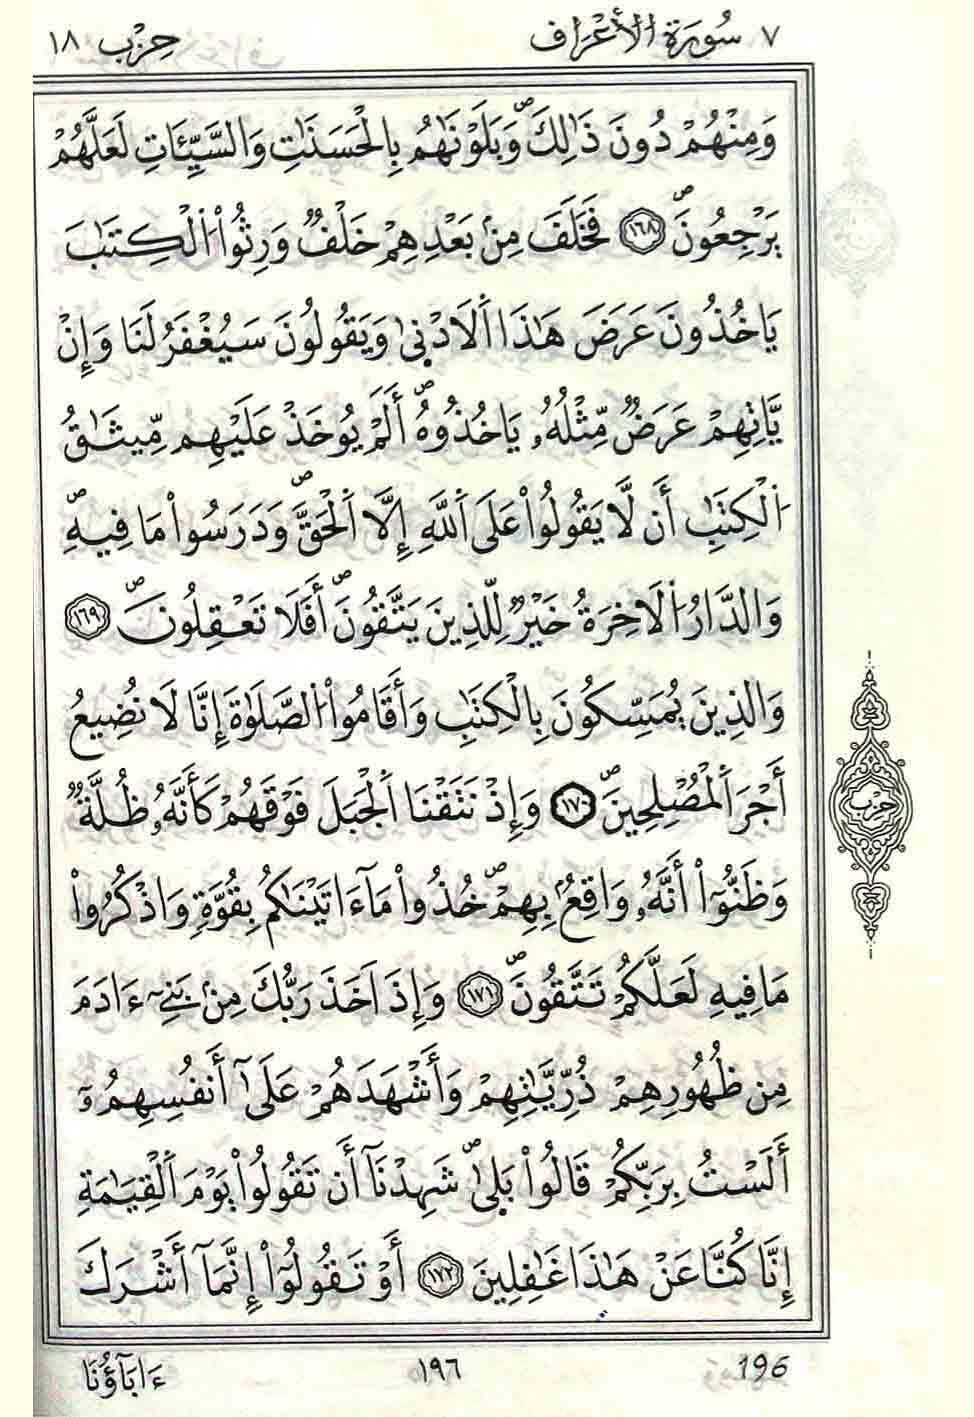 ٧ سُورَةُ الأَعْرَاف
حِزْب ١٨
وَمِنْهُمْ دُونَ ذَٰلِكَۖ وَبَلَوْنَٰهُم بِالْحَسَنَٰتِ وَالسَّيِّـَٔاتِ لَعَلَّهُمْ
يَرْجِعُونَۖ ١٦٨ فَخَلَفَ مِنۢ بَعْدِهِمْ خَلْفٞ وَرِثُوا۟ اُ۬لْكِتَٰبَ
يَاخُذُونَ عَرَضَ هَٰذَا اَ۬لَادْنۭيٰ وَيَقُولُونَ سَيُغْفَرُ لَنَا وَإِنْ
يَّاتِهِمْ عَرَضٞ مِّثْلُهُۥ يَاخُذُوهُۖ أَلَمْ يُوخَذْ عَلَيْهِم مِّيثَٰقُ
اُ۬لْكِتَٰبِ أَن لَّا يَقُولُوا۟ عَلَى اَ۬للَّهِ إِلَّا اَ۬لْحَقَّۖ وَدَرَسُوا۟ مَا فِيهِۖ
وَالدَّارُ اُ۬لَاخِرَةُ خَيْرٞ لِّلذِينَ يَتَّقُونَۖ أَفَلَا تَعْقِلُونَۖ ١٦٩
وَالذِينَ يُمَسِّكُونَ بِالْكِتَٰبِ وَأَقَامُوا۟ اُ۬لصَّلَوٰةَ إِنَّا لَا نُضِيعُ
أَجْرَ اَ۬لْمُصْلِحِينَۖ ١٧٠ وَإِذْ نَتَقْنَا اَ۬لْجَبَلَ فَوْقَهُمْ كَأَنَّهُۥ ظُلَّةٞ
وَظَنُّوٓا۟ أَنَّهُۥ وَاقِعُۢ بِهِمْۖ خُذُوا۟ مَآ ءَاتَيْنَٰكُم بِقُوَّةٖ وَاذْكُرُوا۟
مَا فِيهِ لَعَلَّكُمْ تَتَّقُونَۖ ١٧١ وَإِذَ اَخَذَ رَبُّكَ مِنۢ بَنِےٓ ءَادَمَ
مِن ظُهُورِهِمْ ذُرِّيَّٰتِهِمْ وَأَشْهَدَهُمْ عَلَىٰٓ أَنفُسِهِمُۥٓ
أَلَسْتُ بِرَبِّكُمْ قَالُوا۟ بَلۭيٰۖ شَهِدْنَآ أَن تَقُولُوا۟ يَوْمَ اَ۬لْقِيَٰمَةِ
إِنَّا كُنَّا عَنْ هَٰذَا غَٰفِلِينَ ١٧٢ أَوْ تَقُولُوٓا۟ إِنَّمَآ أَشْرَكَ
حِزْب
196
١٩٦
ءَابَآؤُنَا